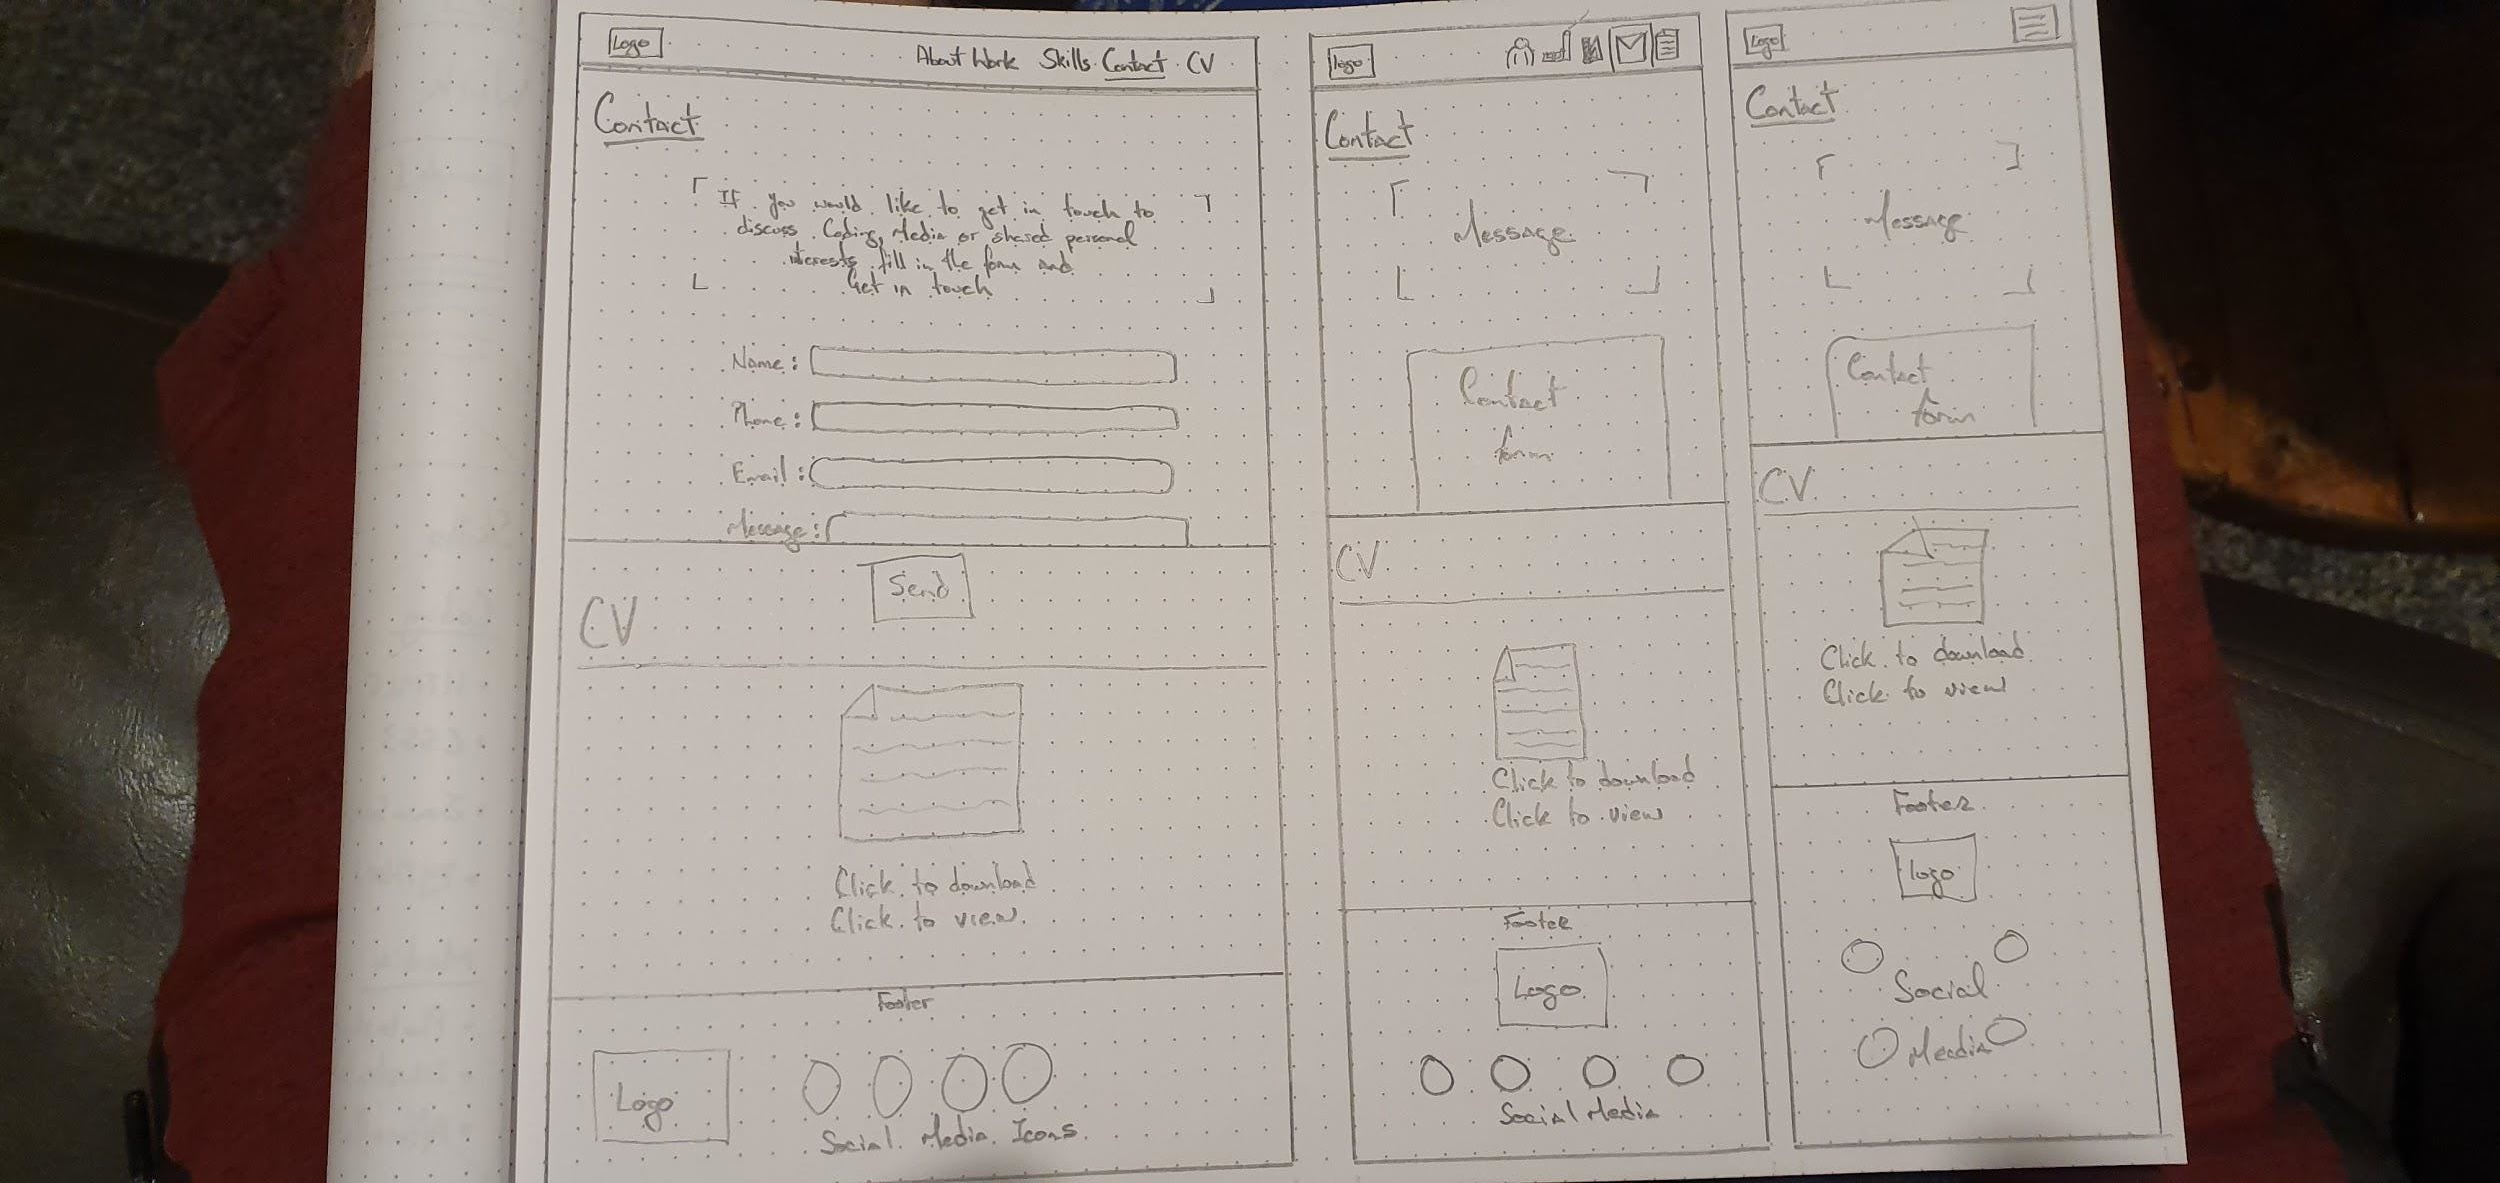 Logo
About Work Skills Contact CV
Contact
If you would like to get in touch to
discuss Coding, Media or shared personal
interests fill in the form and
Get in touch
Name:
Phone:
Email:
Message:
Send
CV
Click to download
Click to view
Footer
Logo
Social Media Icons
logo
Contact
Message
Contact
form
CV
Click to download
Click to view
Footer
Logo
Social Media
Logo
Contact
Message
Contact
form
CV
Click to download
Click to view
Footer
logo
Social
Media